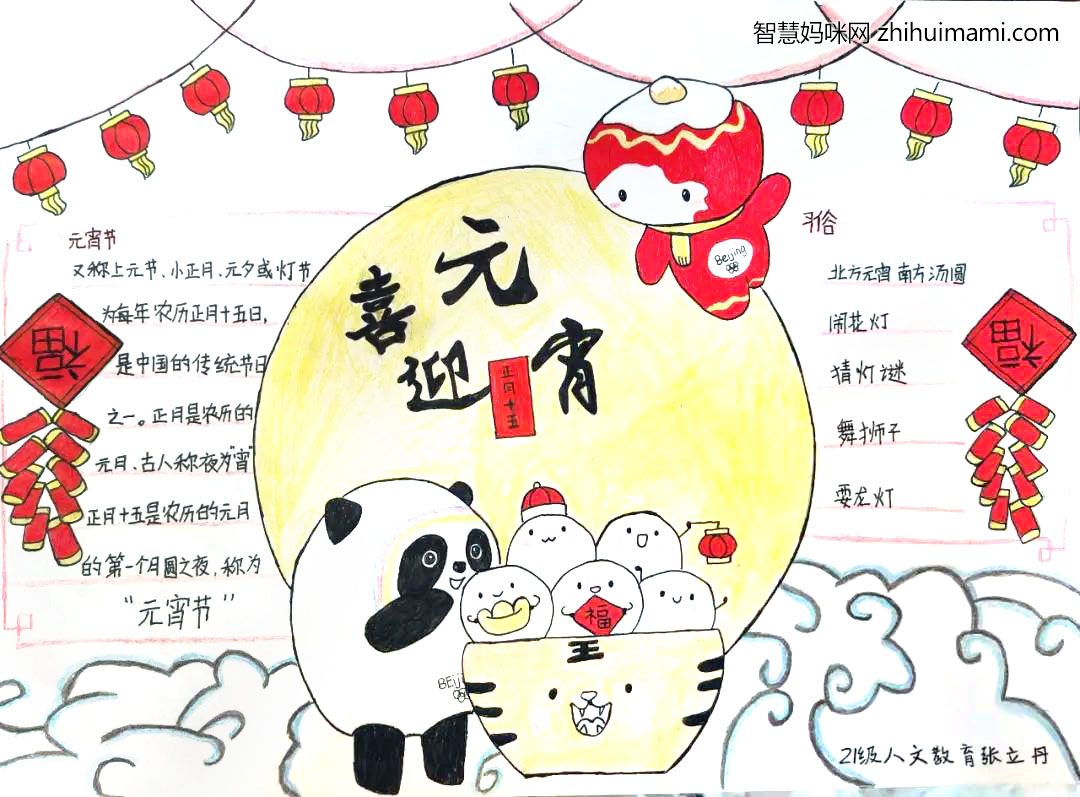 智慧妈咪网 zhihuimami.com
元宵节
又称上元节、小正月、元夕或灯节
为每年农历正月十五日,
是中国的传统节日
之一。正月是农历的
元月、古人称夜为"宵"
正月十五是农历的元月
的第一个月圆之夜,称为
"元宵节"
福
喜迎元宵
正月十五
Beijing
习俗
北方元宵 南方汤圆
闹花灯
猜灯谜
舞狮子
耍龙灯
福
福
王
BEiji
21级人文教育张立丹